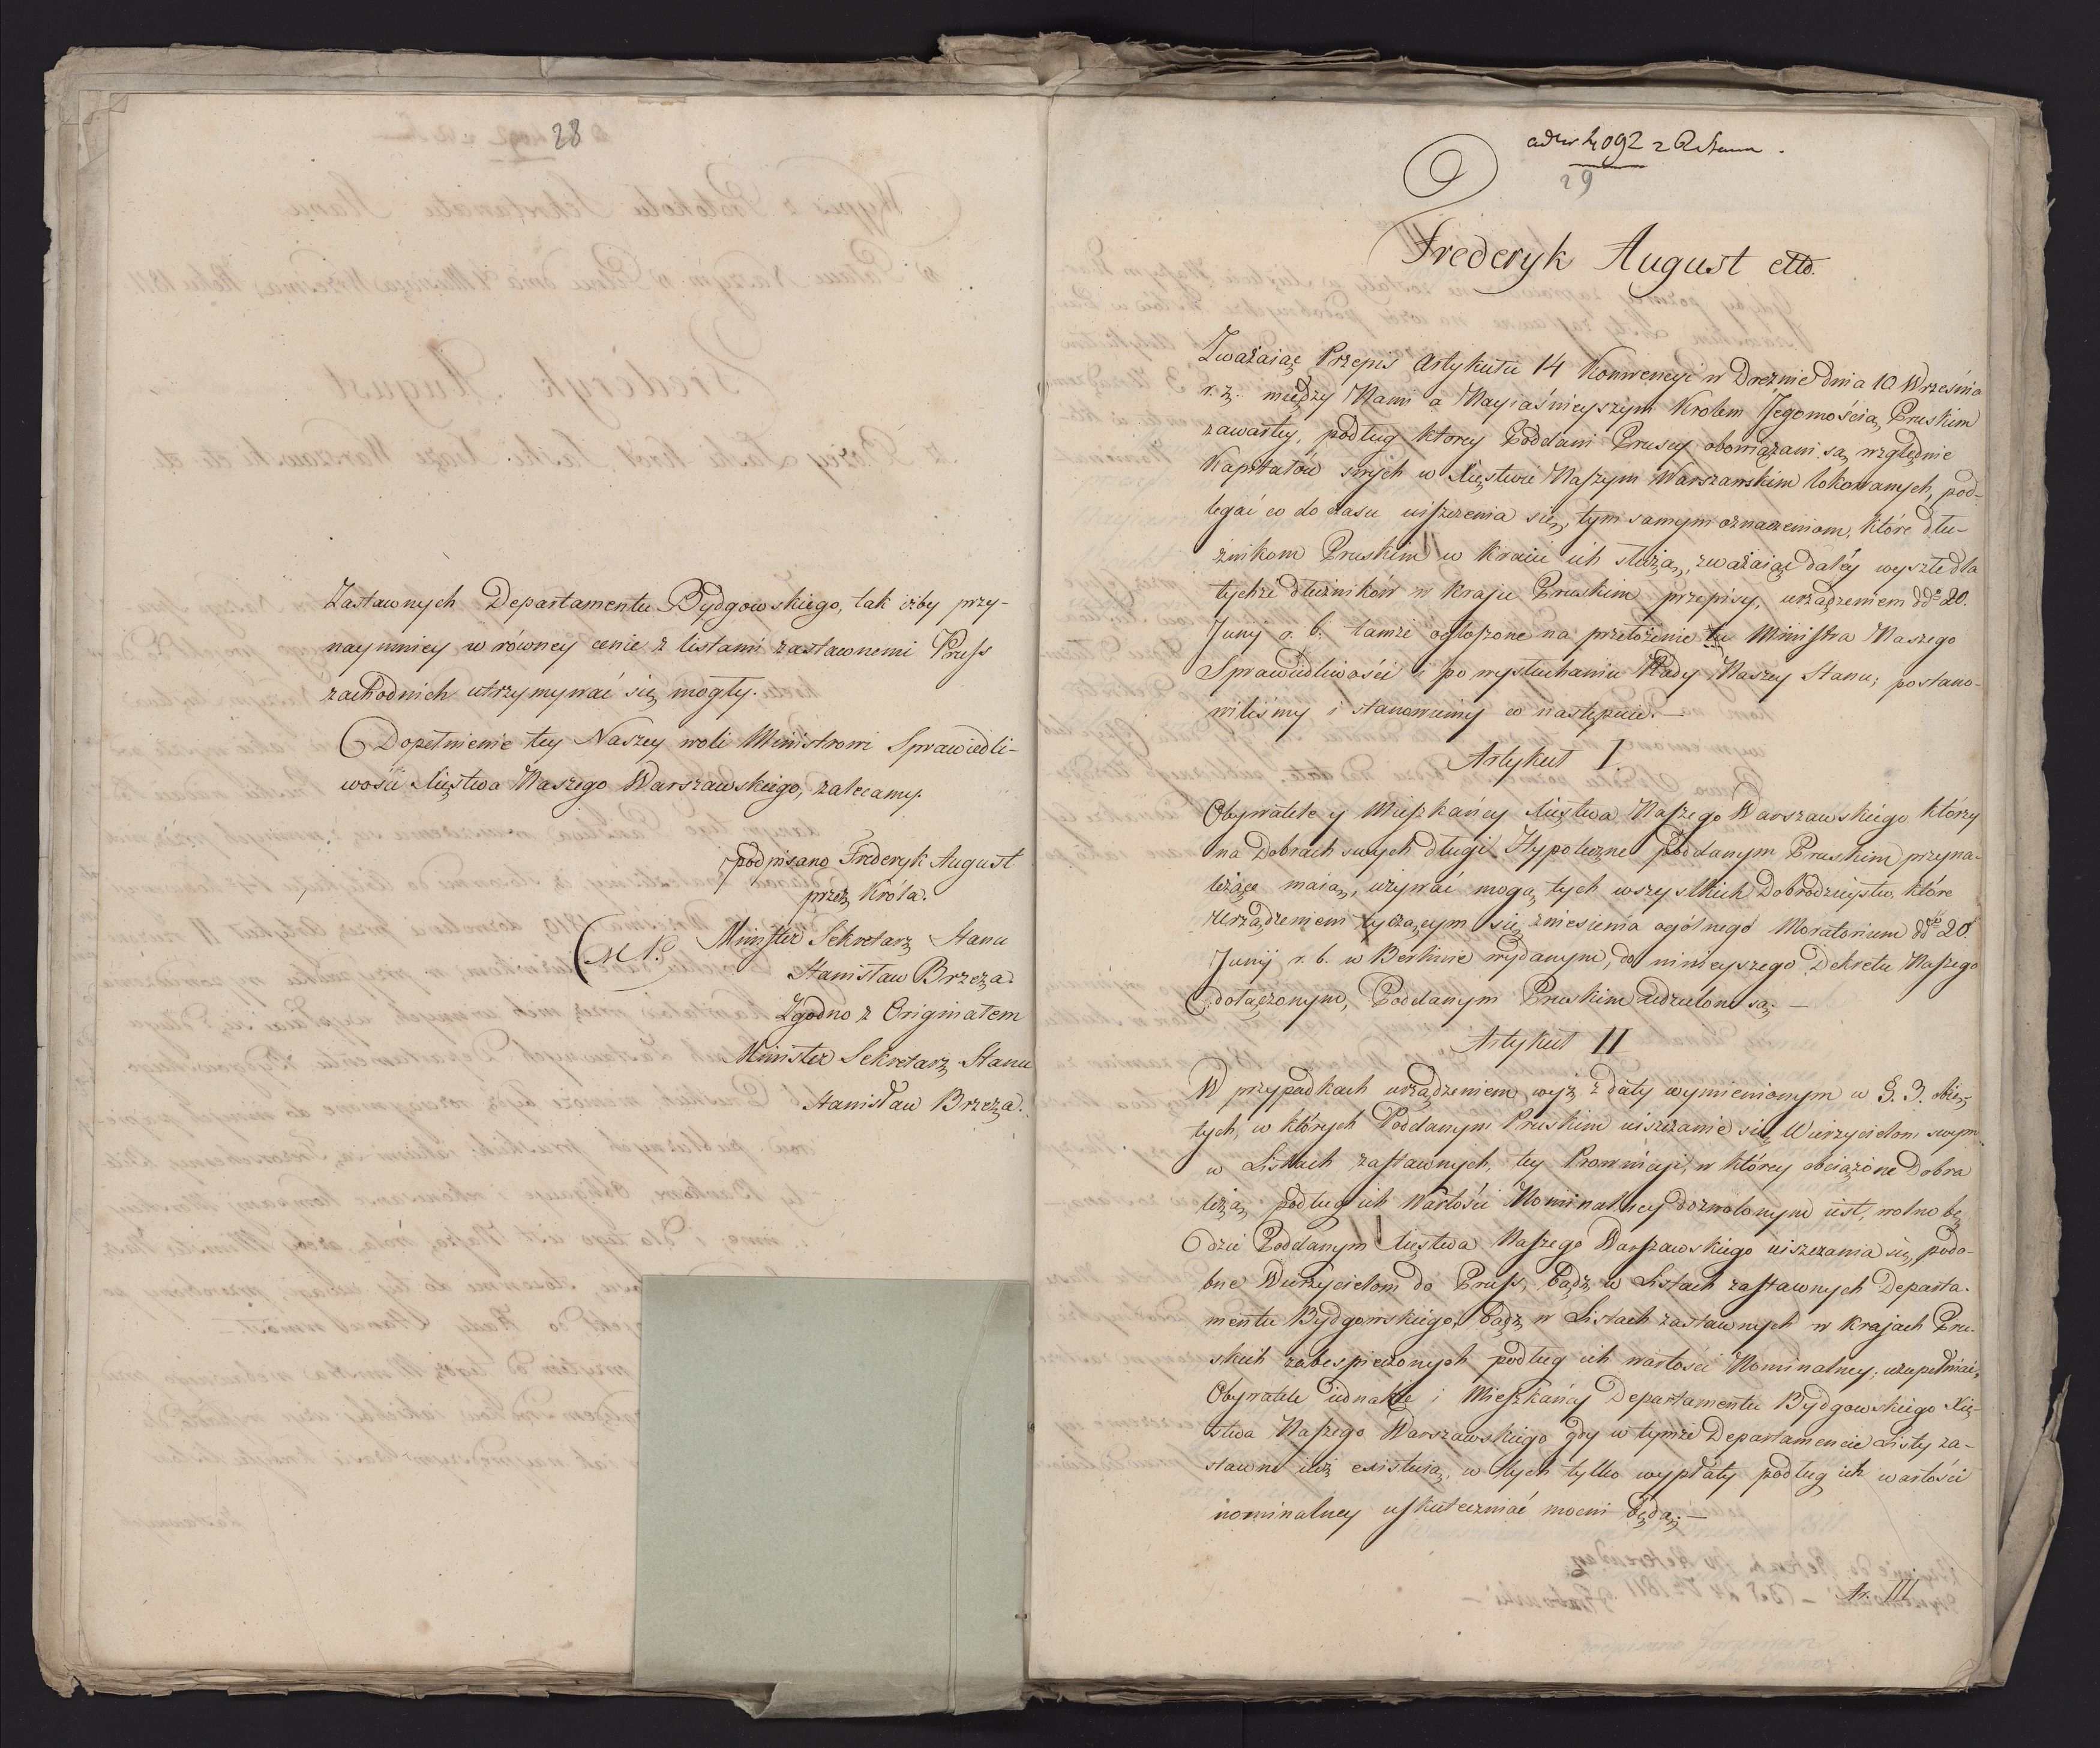 28
Zastawnych Departamentu Bydgowskiego, tak iżby przy-
naymniey w równey cenie z listami zastawnemi Pruss
zachodnich utrzymywać się mogły.
Dopełnienie tey Naszey woli Ministrowi Sprawiedli-
wości Xięstwa Naszego Warszawskiego, zalecamy.
podpisano Frederyk August
przez Króla.
Minister Sekretarz Stanu
Stanisław Brzeza.
Zgodno z Originałem
Minister Sekretarz Stanu
Stanisław Brzeza.
4092 z
29
Frederyk August etto.
Zważaiąc Przepis Artykułu 14 Konwencyi w Dreźnie dnia 10 Września
r. z. między Nami a Nayiaśnieyszym Krolem Jegomościa, Pruskim
zawartey, podług ktorey Poddani Pruscy obowiązani są, względnie
Kapitałow swych w Xięstwie Naszym Warszawskim lokowanych, pod-
legać co do czasu uiszczenia się, tym samym oznaczeniom, które dłu-
żnikom Pruskim w kraiu ich służą, zważaiąc daléy wyszłe dla
tychże dłużników w kraju Pruskim przepisy, urządzeniem dd° 20.
Junij r. b. tamże ogłoszone na przełożenie Ministra Naszego
Sprawiedliwości i po wysłuchaniu Rady Naszey Stanu; postano-
wiliśmy i stanowiemy co następuie.—
Artykuł I.
Obywatele y Mieszkańcy Xięstwa Naszego Warszawskiego którzy
na Dobrach swych długi Hypoteczne Poddanym Pruskim przyna-
leżące maią, używać mogą tych wszystkich Dobrodzieystw, które
Urządzeniem tyczącym się zniesienia ogólnego Moratorium dd° 20.
Junij r. b. w Berlinie wydanym, do ninieyszego Dekretu Naszego
dołączonym, Poddanym Pruskim udzielone są.—
Artykuł II
W przypadkach urządzeniem wyż z daty wymienionym w §. 3. obię-
tych, w których Poddanym Pruskim uiszczanie się Wierzycielom swym
w Listach zastawnych, tey Prowincyi, w którey obciążone Dobra
leżą, podług ich Wartości Nominalney dozwolonym iest, wolno bę-
dzie Poddanym Xięstwa Naszego Warszawskiego uiszczania się, podo-
bne Wierzycielom do Pruss, bądź w Listach zastawnych Departa-
mentu Bydgowskiego, bądź w Listach zastawnych w krajach Pru-
skich zabespieczonych podług ich wartości Nominalney, uzupełniać,
Obywatele iednakże i Mieszkańcy Departamentu Bydgowskiego Xię-
stwa Naszego Warszawskiego gdy w tymże Departamencie Listy za-
stawne iuż existuią, w tych tylko wypłaty podług ich wartości
nominalney uskuteczniać mocni będą.—
Ar. III